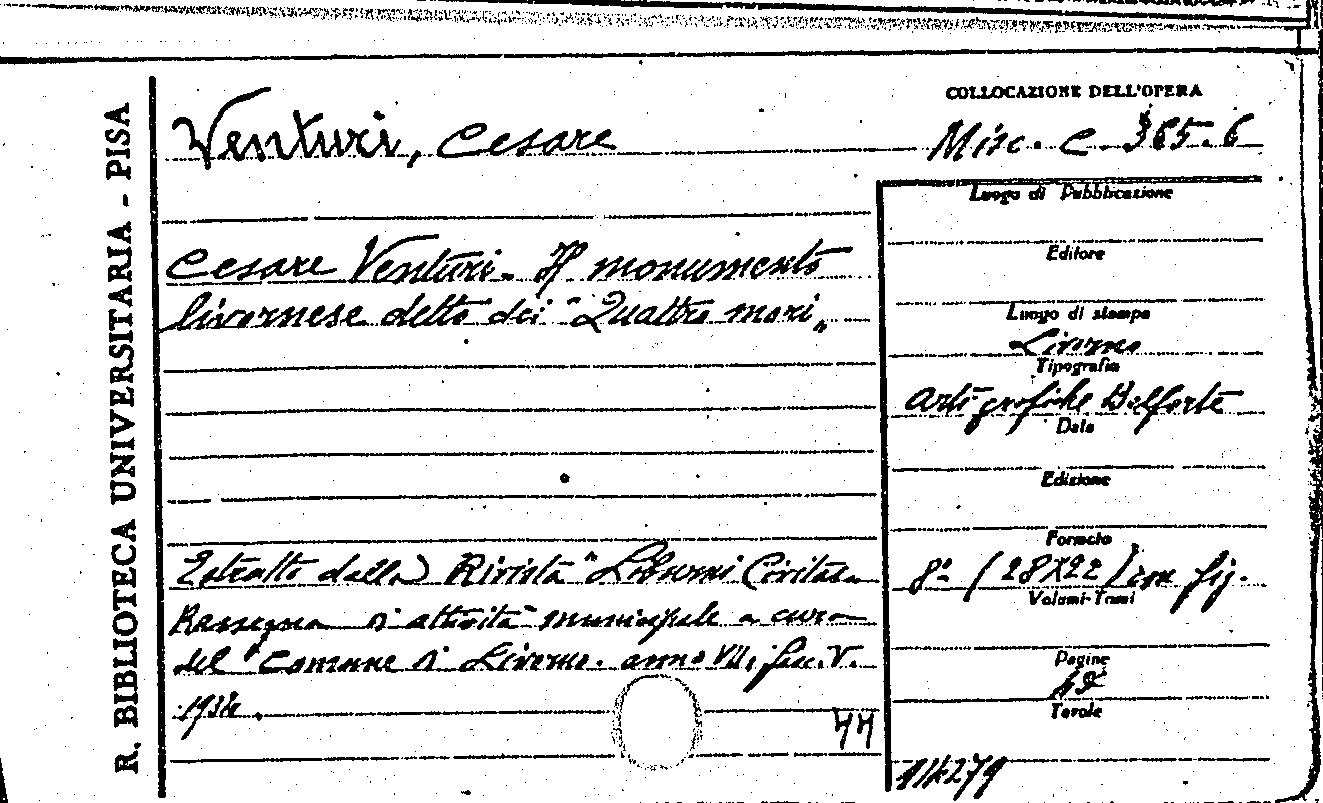 R. BIBLIOTECA UNIVERSITARIA - PISA
Venturi, Cesare
COLLOCAZIONE DELL'OPERA
Misc. C. 365.6
Cesare Venturi - Il monumento
livornese detto dei "Quattro mori"
Estratto dalla Rivista "Liburni Civitas
Rassegna di attività municipale a cura
del Comune di Livorno. anno VII, fasc. V.
44
Luogo di Pubblicazione
Editore
Luogo di stampa
Livorno
Tipografia
Arti grafiche Belforte
Data
Edizione
Formato
8º (28X22) con fig.
Volumi-Tomi
Pagine
Tavole
114279